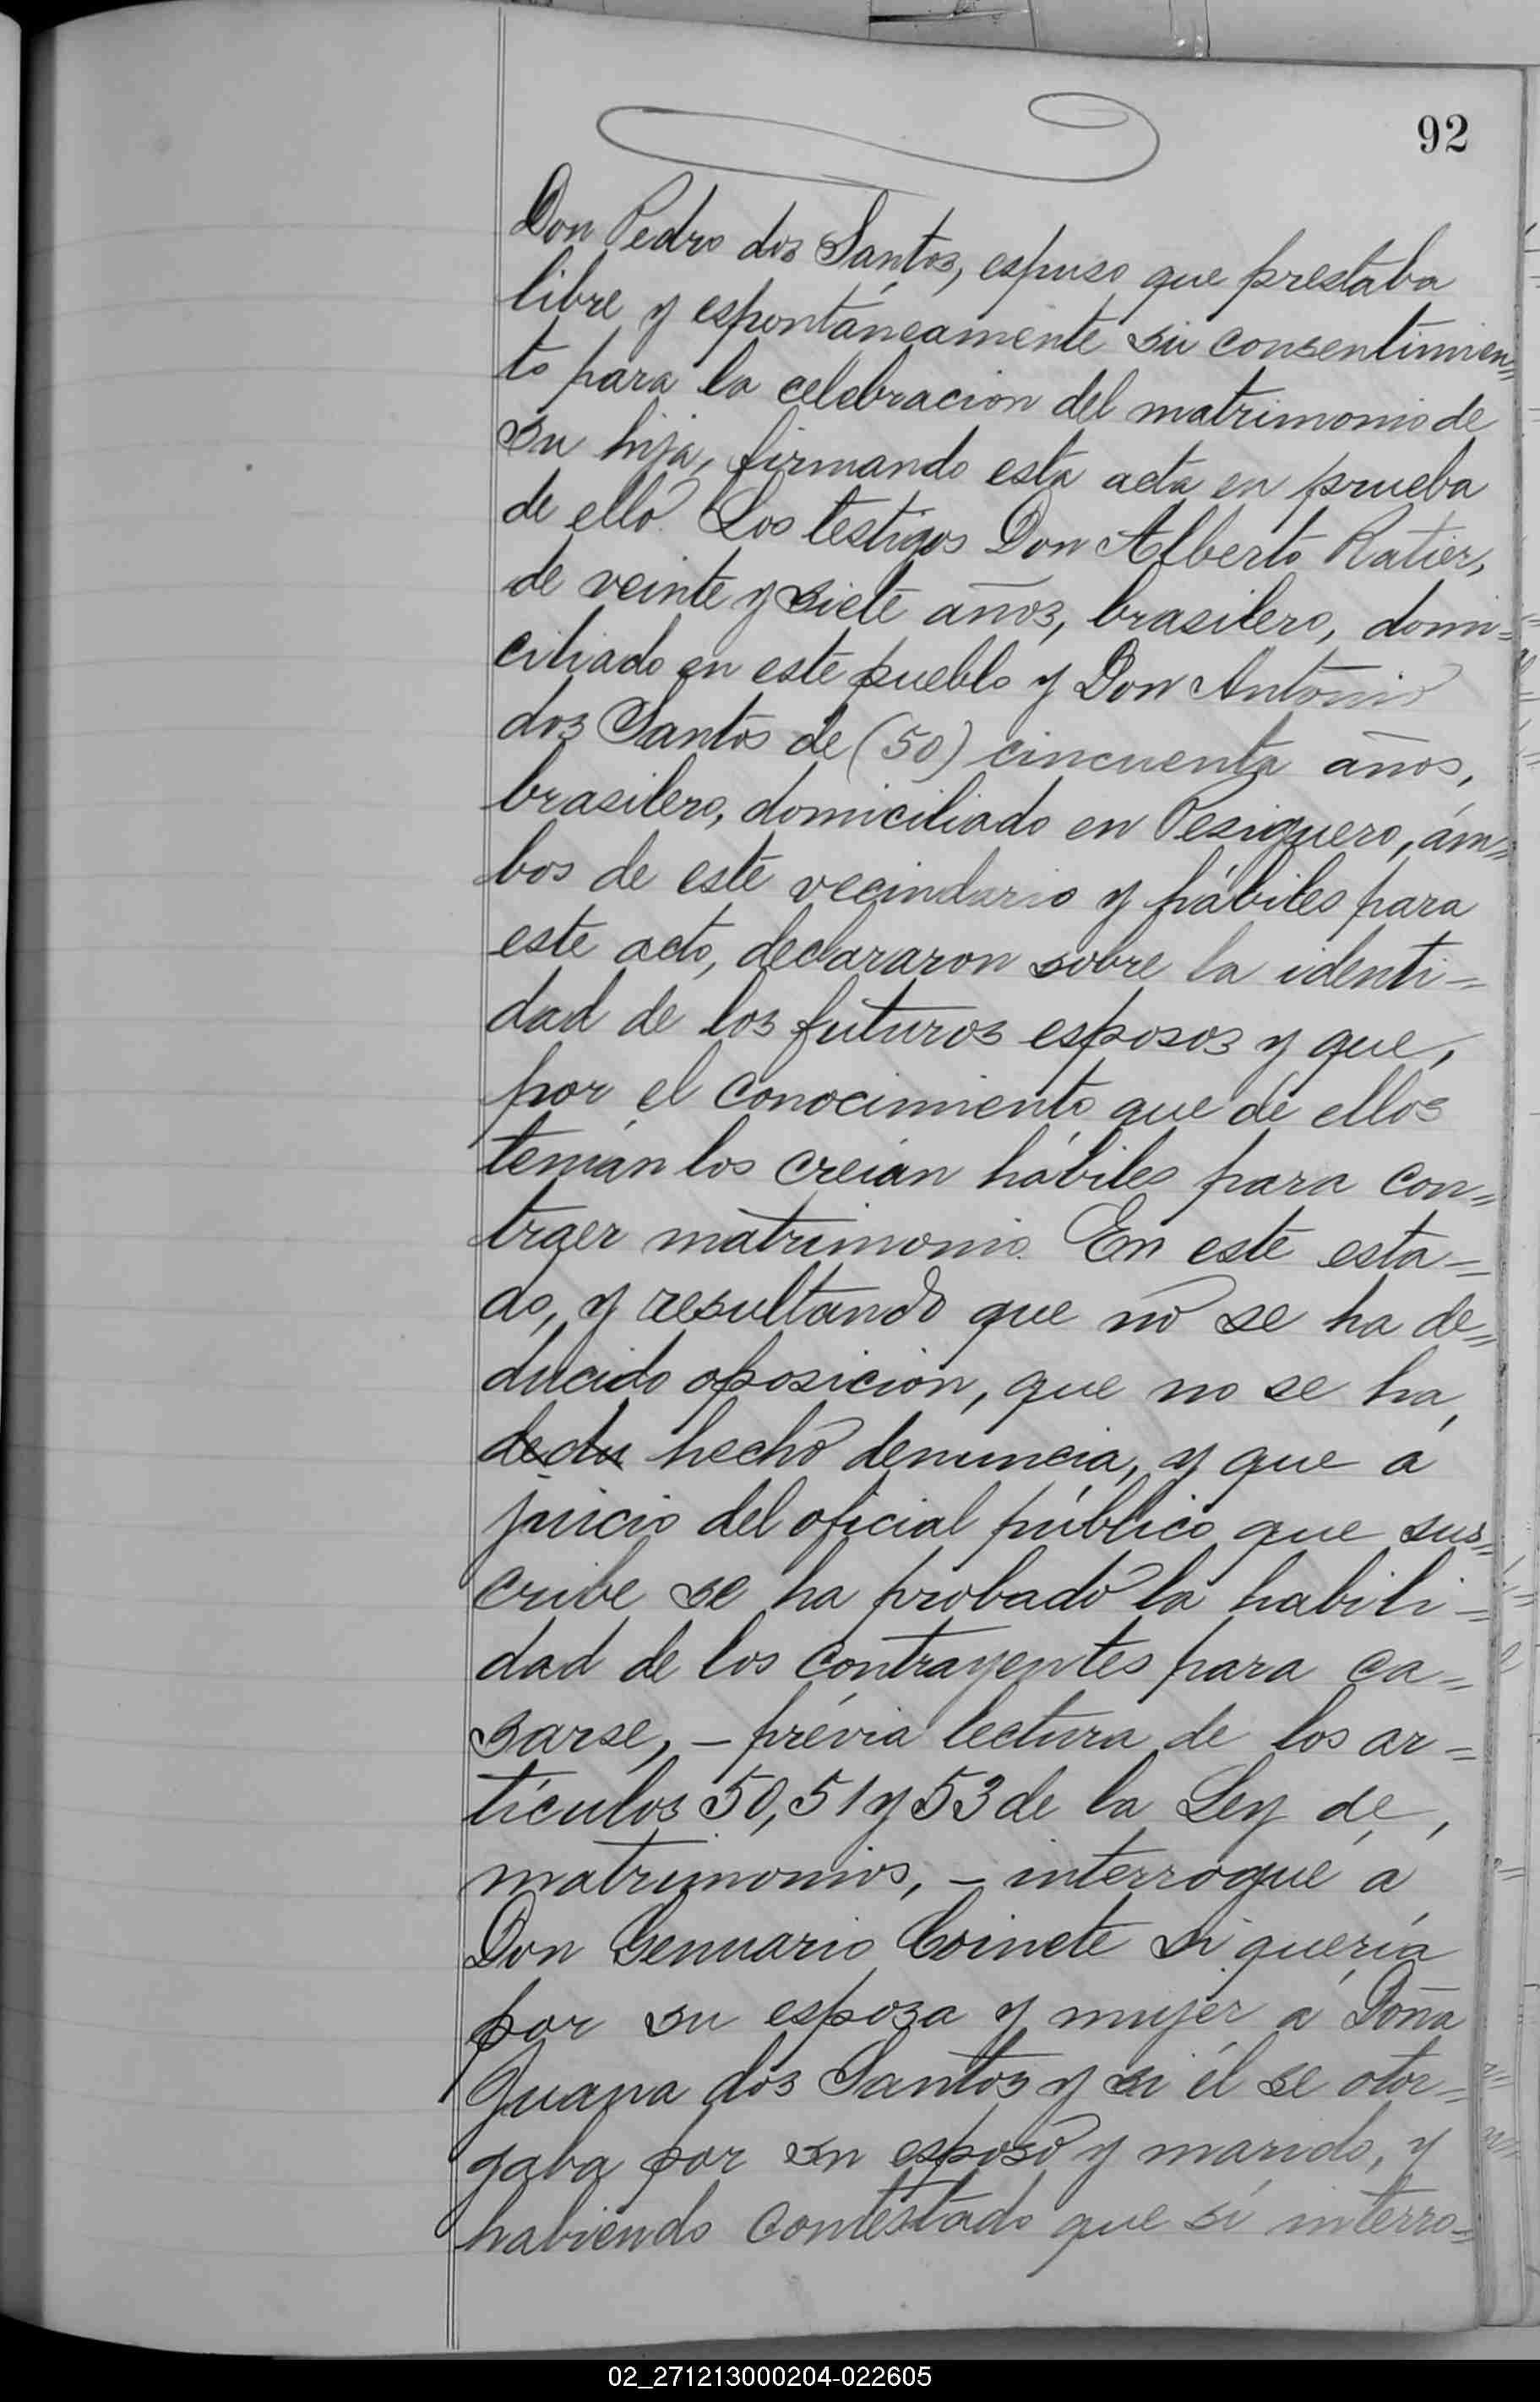 92
Don Pedro dos Santos, espuso que prestaba
libre y espontáneamente su consentimien=
to para la celebracion del matrimonio de
su hija, firmando esta acta en prueba
de ello. Los testigos Don Alberto Ratier,
de veinte y siete años, brasilero, domi=
ciliado en este pueblo y Don Antonio
dos Santos de (50) cincuenta años,
brasilero, domiciliado en Pesiguero, ám=
bos de este vecindario y hábiles para
este acto, declararon sobre la identi=
dad de los futuros esposos y que,
por el conocimiento que de ellos
tenian los creian hábiles para con=
traer matrimonio. En este esta=
do, y resultando que no se ha de=
ducido oposicion, que no se ha
dedu hecho denuncia, y que á
juicio del oficial público que sus=
cribe se ha probado la habili=
dad de los contrayentes para ca=
sarse, – prévia lectura de los ar=
tículos 50, 51 y 53 de la Ley de
matrimonios, – interrogué á
Don Genuario Coinete si quería
por su esposa y mujer á Doña
Juana dos Santos y si él se otor=
gaba por su esposo y marido, y
habiendo contestado que sí interro=
02_271213000204-022605